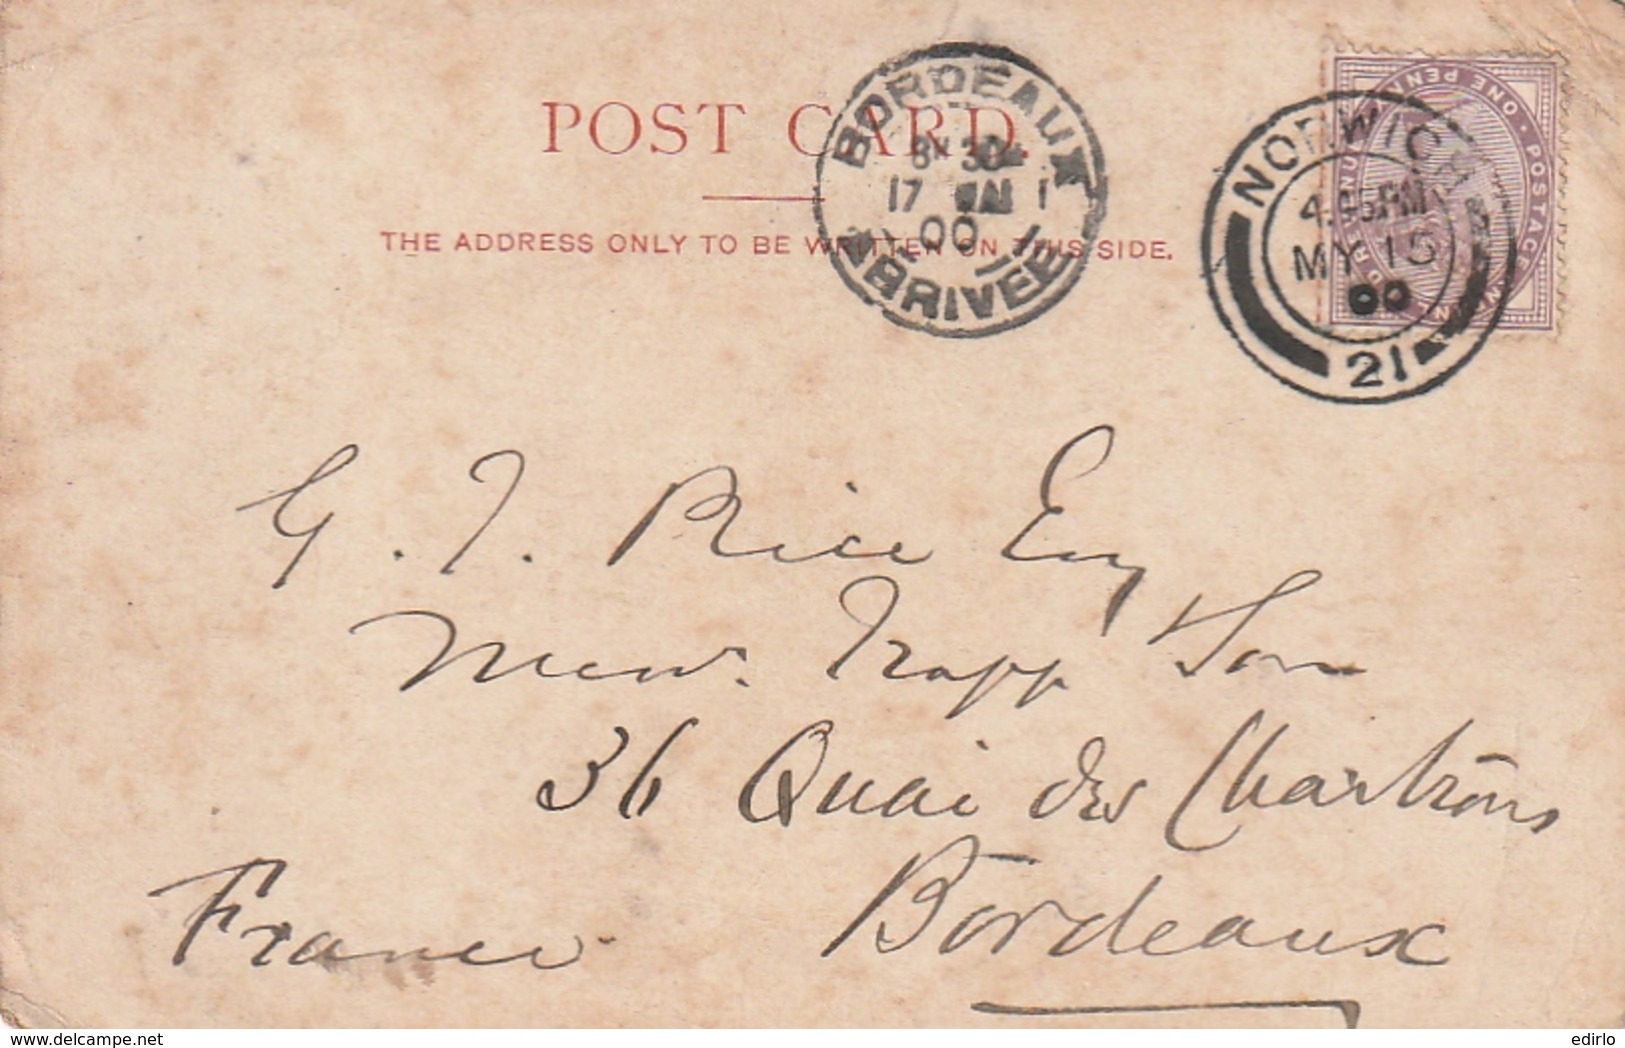 POST CARD.
THE ADDRESS ONLY TO BE WRITTEN ON THIS SIDE.
BORDEAUX
8 30
17 MAI
00
ARRIVEE
NORWICH
4.45PM
MY 15
00
21
POSTAGE
ONE PENNY
G. J. Rice Esq
Trapp Son
36 Quai des Chartrons
Bordeaux
France
www.delcampe.net
edirlo